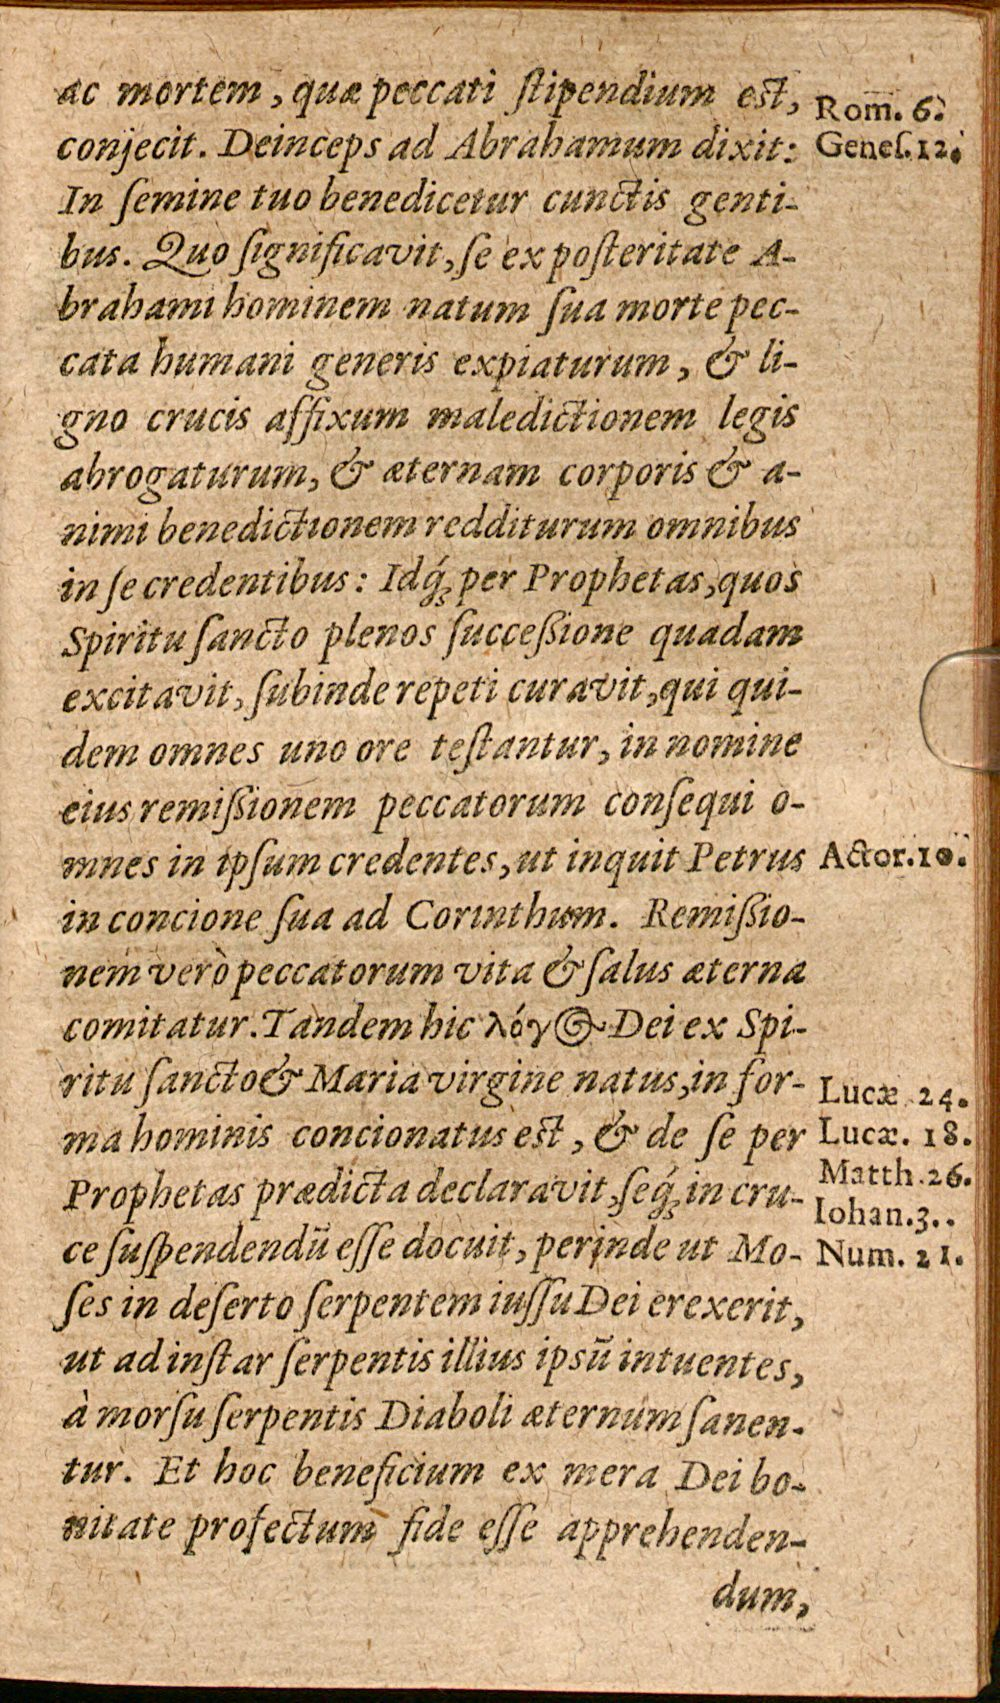 ac mortem, quæ peccati ſtipendium est,
Rom. 6.
conjecit. Deinceps ad Abrahamum dixit:
Geneſ. 12.
In ſemine tuo benedicetur cunctis genti-
bus. Quo ſignificavit, ſe ex poſteritate A-
brahami hominem natum ſua morte pec-
cata humani generis expiaturum, & li-
gno crucis affixum maledictionem legis
abrogaturum, & æternam corporis & a-
nimi benedictionem redditurum omnibus
in ſe credentibus: Idq́; per Prophetas, quos
Spiritu ſancto plenos ſucceßione quadam
excitavit, ſubinde repeti curavit, qui qui-
dem omnes uno ore teſtantur, in nomine
eius remißionem peccatorum conſequi o-
mnes in ipſum credentes, ut inquit Petrus
Actor. 10.
in concione ſua ad Corinthum. Remißio-
nem verò peccatorum vita & ſalus æterna
comitatur. Tandem hic λόγος Dei ex Spi-
ritu ſancto & Maria virgine natus, in for-
Lucæ 24.
ma hominis concionatus est, & de ſe per
Lucæ. 18.
Matth. 26.
Prophetas prædicta declaravit, ſeq́; in cru-
Iohan. 3..
ce ſuſpendendū eſſe docuit, perinde ut Mo-
Num. 21.
ſes in deſerto ſerpentem iuſſu Dei erexerit,
ut ad inſtar ſerpentis illius ipsū intuentes,
à morſu ſerpentis Diaboli æternum ſanen-
tur. Et hoc beneficium ex mera Dei bo-
nitate profectum fide eſſe apprehenden-
dum,